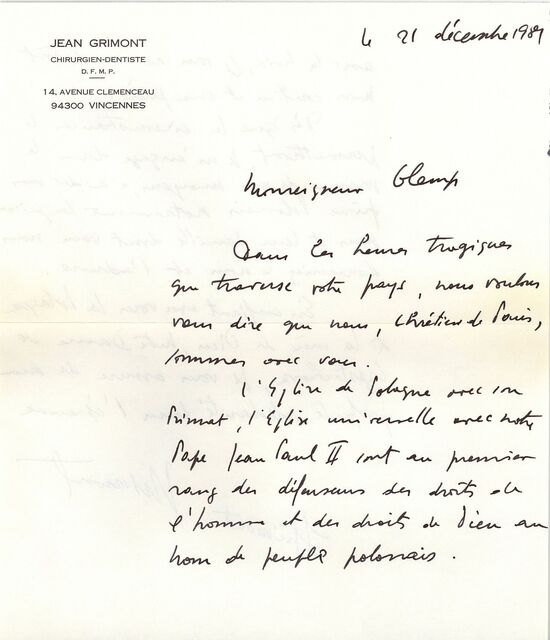 JEAN GRIMONT
CHIRURGIEN-DENTISTE
D. F. M. P.
14, AVENUE CLEMENCEAU
94300 VINCENNES
le 21 décembre 1981
Monseigneur Glemp
Dans les heures tragiques
que traverse votre pays, nous voulons
vous dire que nous, Chrétiens de Paris,
sommes avec vous.
L'Eglise de Pologne avec son
Primat, l'Eglise universelle avec notre
Pape Jean Paul II sont au premier
rang des défenseurs des droits de
l'homme et des droits de Dieu au
nom de peuple polonais.